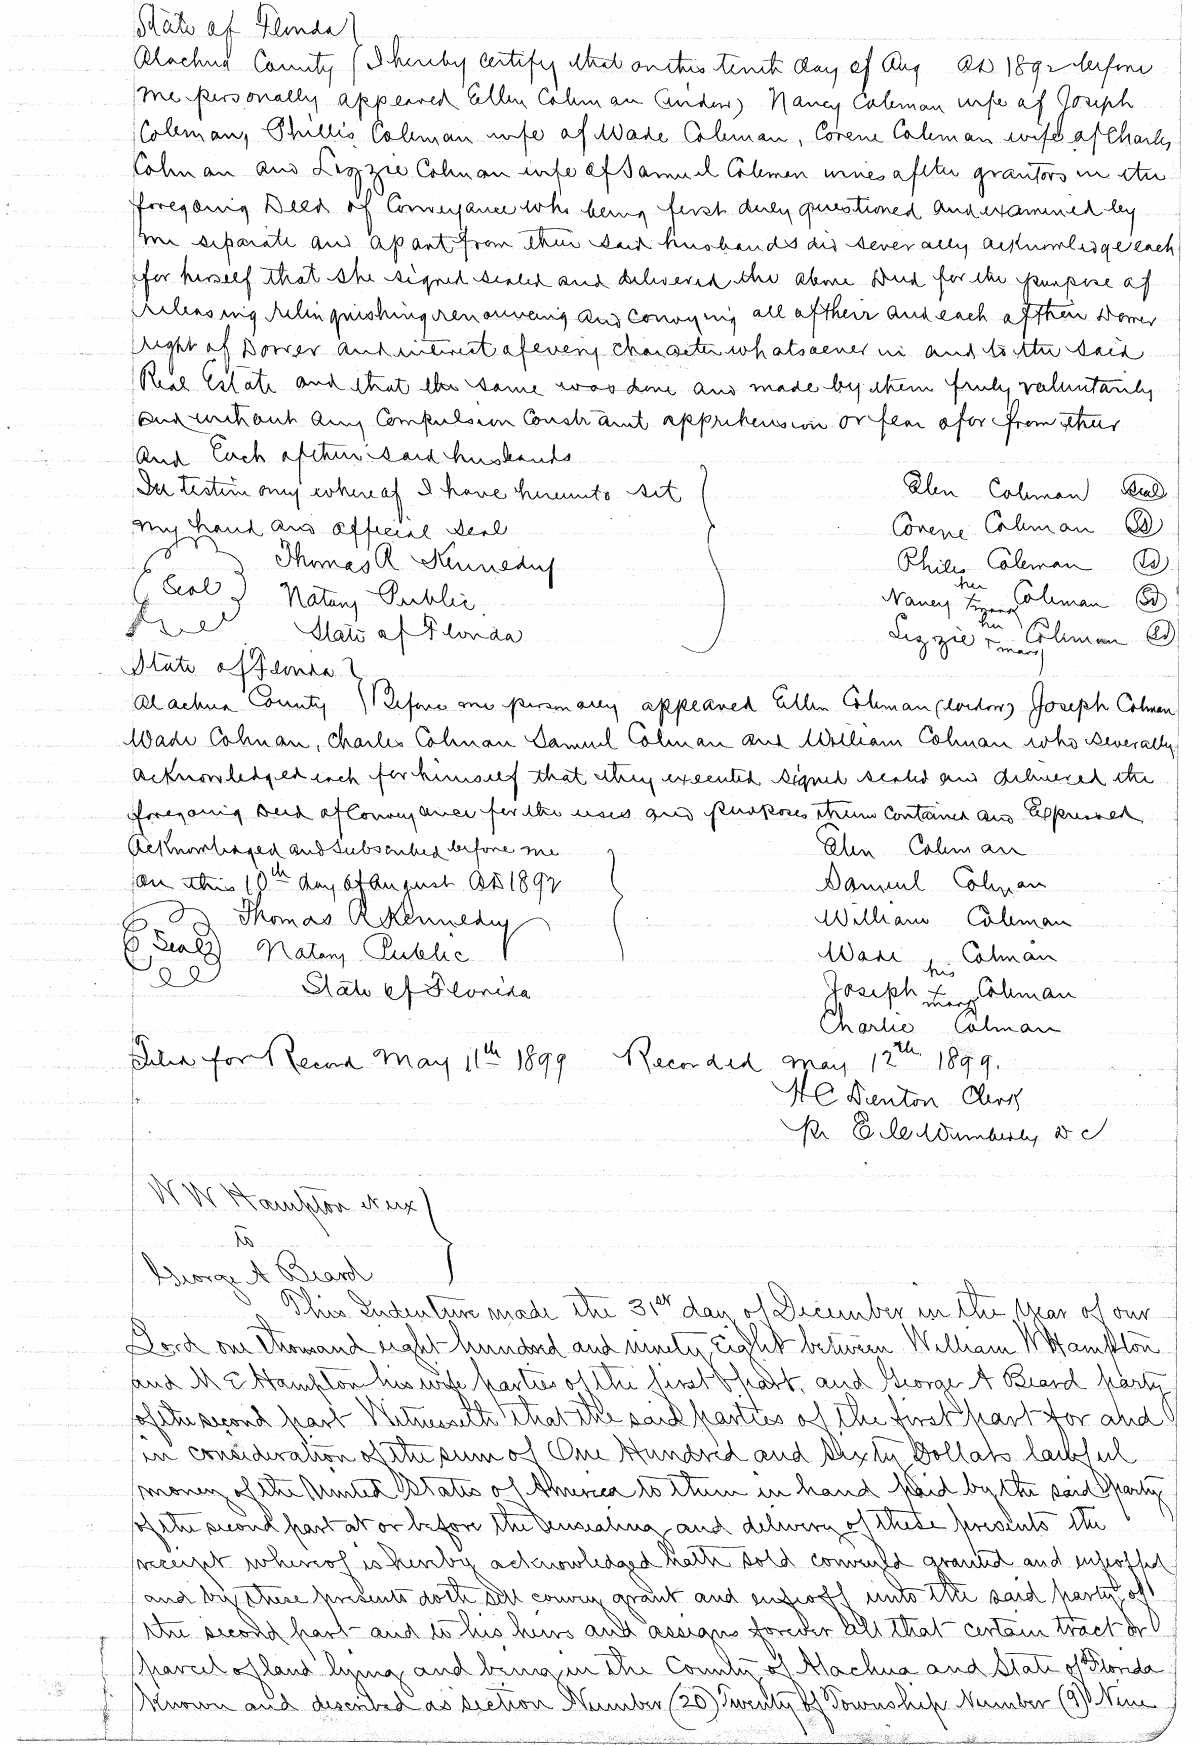 State of Florida
Alachua County I hereby certify that on this tenth day of Aug AD 1892 before
me personally appeared Ellen Colman (widow) Nancy Coleman wife of Joseph
Coleman, Phillis Coleman wife of Wade Coleman, Corene Coleman wife of Charles
Colman and Lizzie Colman wife of Samuel Coleman wives after grantors in the
foregoing Deed of Conveyance who being first duly questioned and examined by
me separate and apart from their said husbands did severally acknowledge each
for herself that she signed sealed and delivered the above Deed for the purpose of
releasing relinquishing renouncing and conveying all of their and each of their Dower
right of Dower and interest of every character whatsoever in and to the said
Real Estate and that the same was done and made by them truly voluntarily
and without any Compulsion Constraint apprehension or fear of or from their
and Each of their said husbands
In testimony whereof I have hereunto set
my hand and official seal
Thomas R Kennedy
Seal Notary Public
State of Florida
Elen Coleman Seal
Corene Coleman Sd
Philis Coleman Sd
Nancy her mark Coleman Sd
Lizzie her x mark Coleman Sd
State of Florida
Alachua County Before me personally appeared Ellen Coleman (widow) Joseph Colman
Wade Colman, Charles Colman Samuel Colman and William Colman who severally
acknowledged each for himself that they executed signed sealed and delivered the
foregoing Deed of Conveyance for the uses and purposes therein contained and Expressed
Acknowledged and subscribed before me
on this 10th day of August AD 1892
Thomas R Kennedy
Seal Notary Public
State of Florida
Elen Colman
Samuel Colman
William Coleman
Wade Colman
Joseph his x mark Coleman
Charlie Colman
Filed for Record May 11th 1899 Recorded May 12th 1899.
H C Denton Clerk
Pr Wimberly D C
W W Hampton et ux
to
George A Beard
This Indenture made the 31st day of December in the Year of our
Lord one thousand eight hundred and ninety Eight between William W Hampton
and M E Hampton his wife parties of the first part, and George A Beard party
of the second part Witnesseth that the said parties of the first part for and
in consideration of the sum of One Hundred and Sixty Dollars lawful
money of the United States of America to them in hand paid by the said party
of the second part at or before the Ensealing and delivery of these presents the
receipt whereof is hereby acknowledged hath sold conveyed granted and enfeoffed
and by these presents doth sell convey grant and enfeoff unto the said party of
the second part and to his heirs and assigns forever all that certain tract or
parcel of land lying and being in the County of Alachua and State of Florida
known and described as section Number (20) Twenty of Township Number (9) Nine